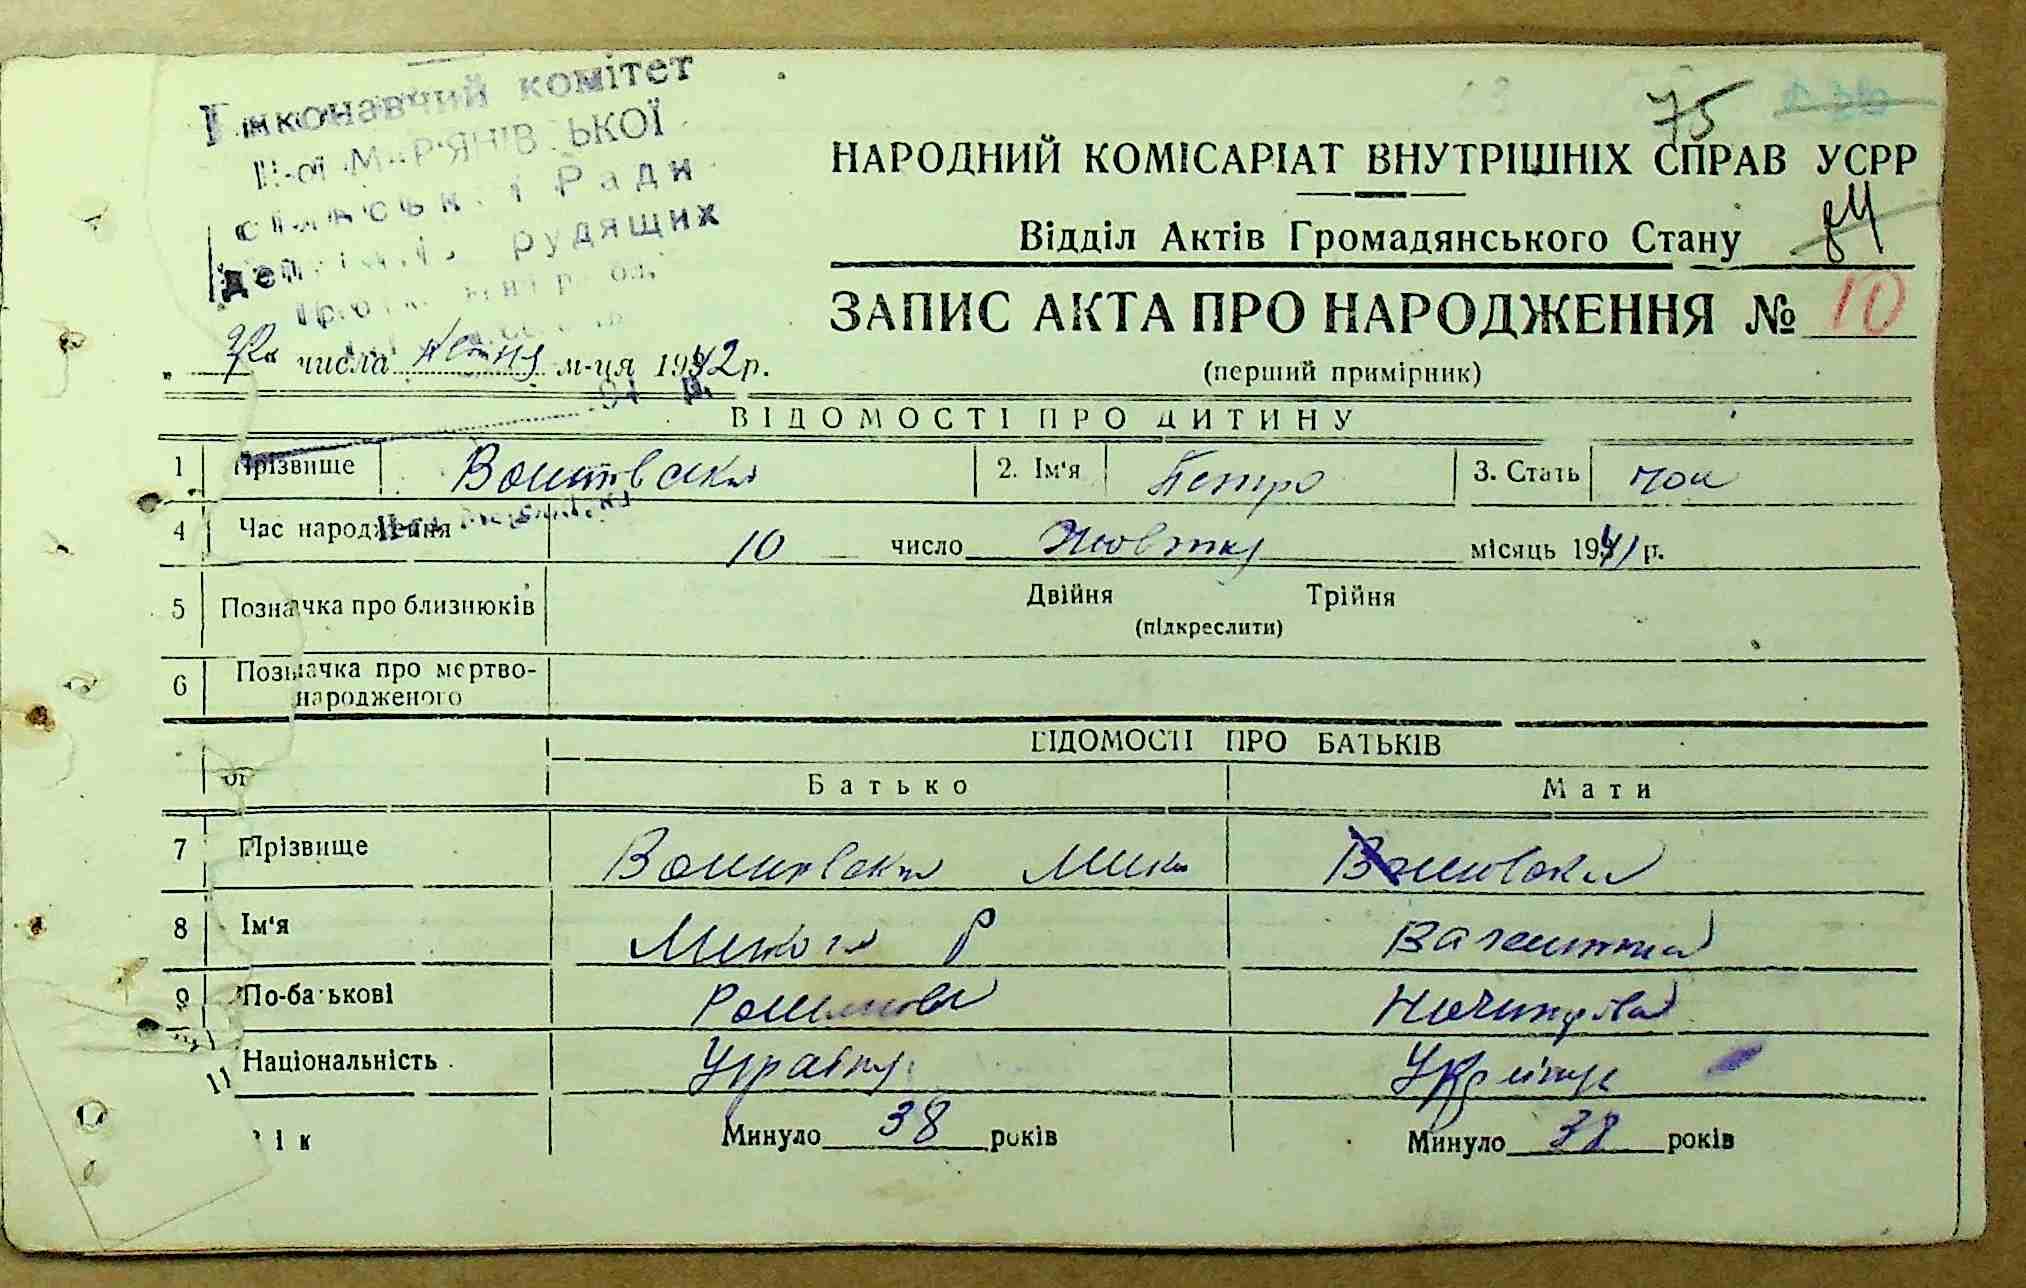 Виконавчий комітет
ІІ-ої МАР'ЯНІВСЬКОЇ
сільської Ради
трудящих
75
НАРОДНИЙ КОМІСАРІАТ ВНУТРІШНІХ СПРАВ УСРР
Відділ Актів Громадянського Стану
84
ЗАПИС АКТА ПРО НАРОДЖЕННЯ № 10
(перший примірник)
числа м-ця 1942 р.
ВІДОМОСТІ ПРО ДИТИНУ
1 Прізвище 2. Ім'я Петро 3. Стать чол
4 Час народження 10 число Жовтня місяць 1941 р.
5 Позначка про близнюків Двійня Трійня
(підкреслити)
6 Позначка про мертво-
народженого
ВІДОМОСТІ ПРО БАТЬКІВ
Батько Мати
7 Прізвище
8 Ім'я Микола Р Валентина
9 По-батькові
Національність
11
Вік Минуло 38 років Минуло 38 років